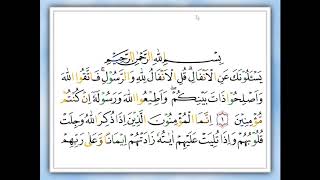 بِسْمِ اللّٰهِ الرَّحْمٰنِ الرَّحِيْمِ
يَسْـَٔلُوْنَكَ عَنِ الْاَنْفَالِ ۗ قُلِ الْاَنْفَالُ لِلّٰهِ وَالرَّسُوْلِ ۚ فَاتَّقُوا اللّٰهَ
وَاَصْلِحُوْا ذَاتَ بَيْنِكُمْ ۖ وَاَطِيْعُوا اللّٰهَ وَرَسُوْلَهٗٓ اِنْ كُنْتُمْ
مُّؤْمِنِيْنَ ١ اِنَّمَا الْمُؤْمِنُوْنَ الَّذِيْنَ اِذَا ذُكِرَ اللّٰهُ وَجِلَتْ
قُلُوْبُهُمْ وَاِذَا تُلِيَتْ عَلَيْهِمْ اٰيٰتُهٗ زَادَتْهُمْ اِيْمَانًا وَّعَلٰى رَبِّهِمْ